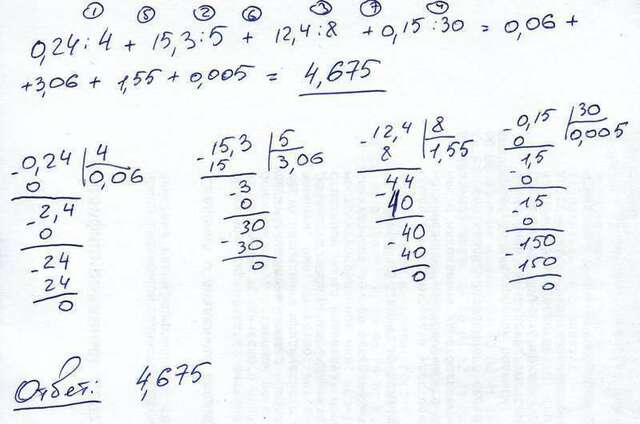 ① ⑤ ② ⑥ ③ ⑦ ④
0,24:4 + 15,3:5 + 12,4:8 + 0,15:30 = 0,06 +
+3,06 + 1,55 + 0,005 = 4,675
-0,24 4
0 0,06
-2,4
0
-24
24
0
-15,3 5
15 3,06
-3
0
30
-30
0
-12,4 8
8 1,55
-44
40
-40
40
0
-0,15 30
0 0,005
-1,5
0
-15
0
-150
150
0
Ответ: 4,675